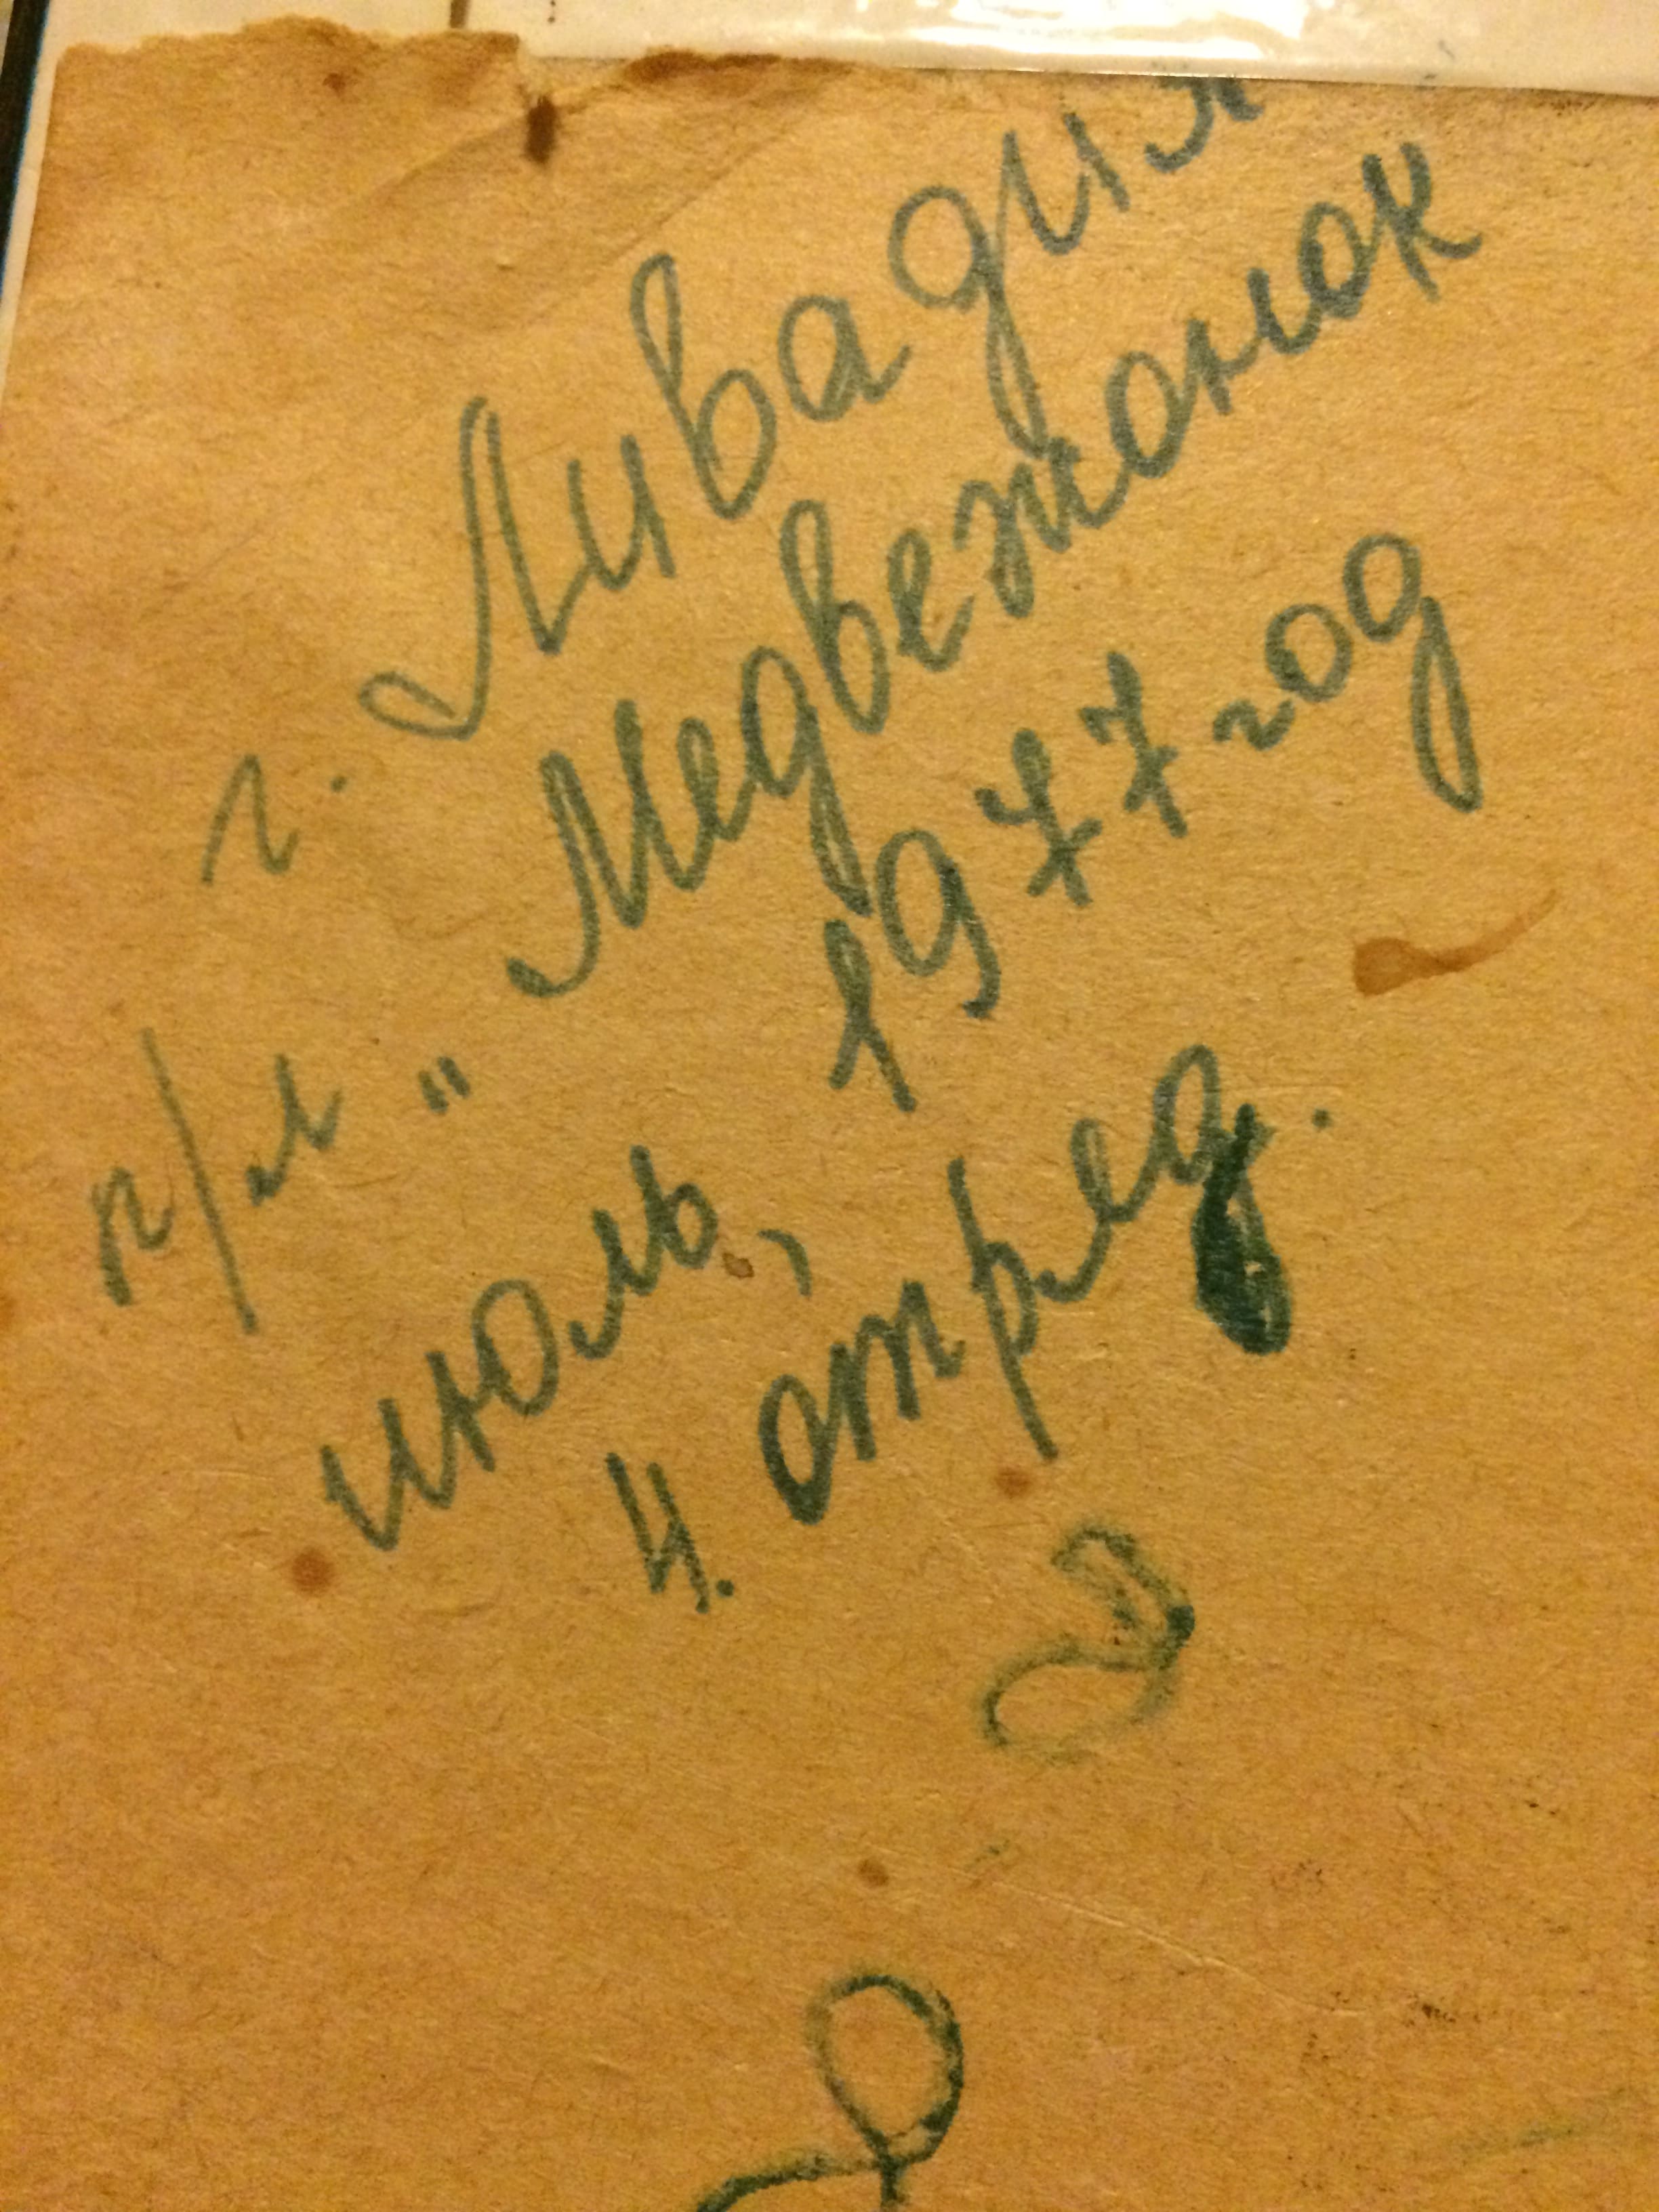 г. Ливадия
п/л "Медвежонок
июль, 1977 год
4. отряд.